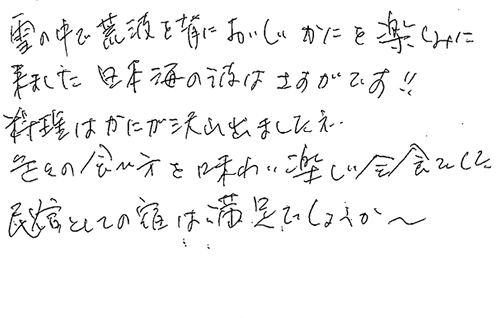 雪の中で荒波を背においしいかにを楽しみに
来ました 日本海の波はさすがです!!
料理はかにが沢山出ましたネ
の食べ方を味わい楽しい会食でした
民宿としての宿は満足でしょうか〜